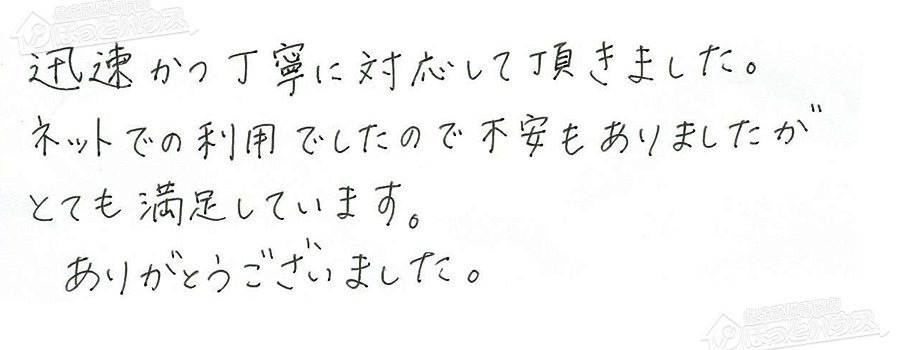 迅速かつ丁寧に対応して頂きました。
ネットでの利用でしたので不安もありましたが
とても満足しています。
ありがとうございました。
ほっとハウス
ほっとハウス